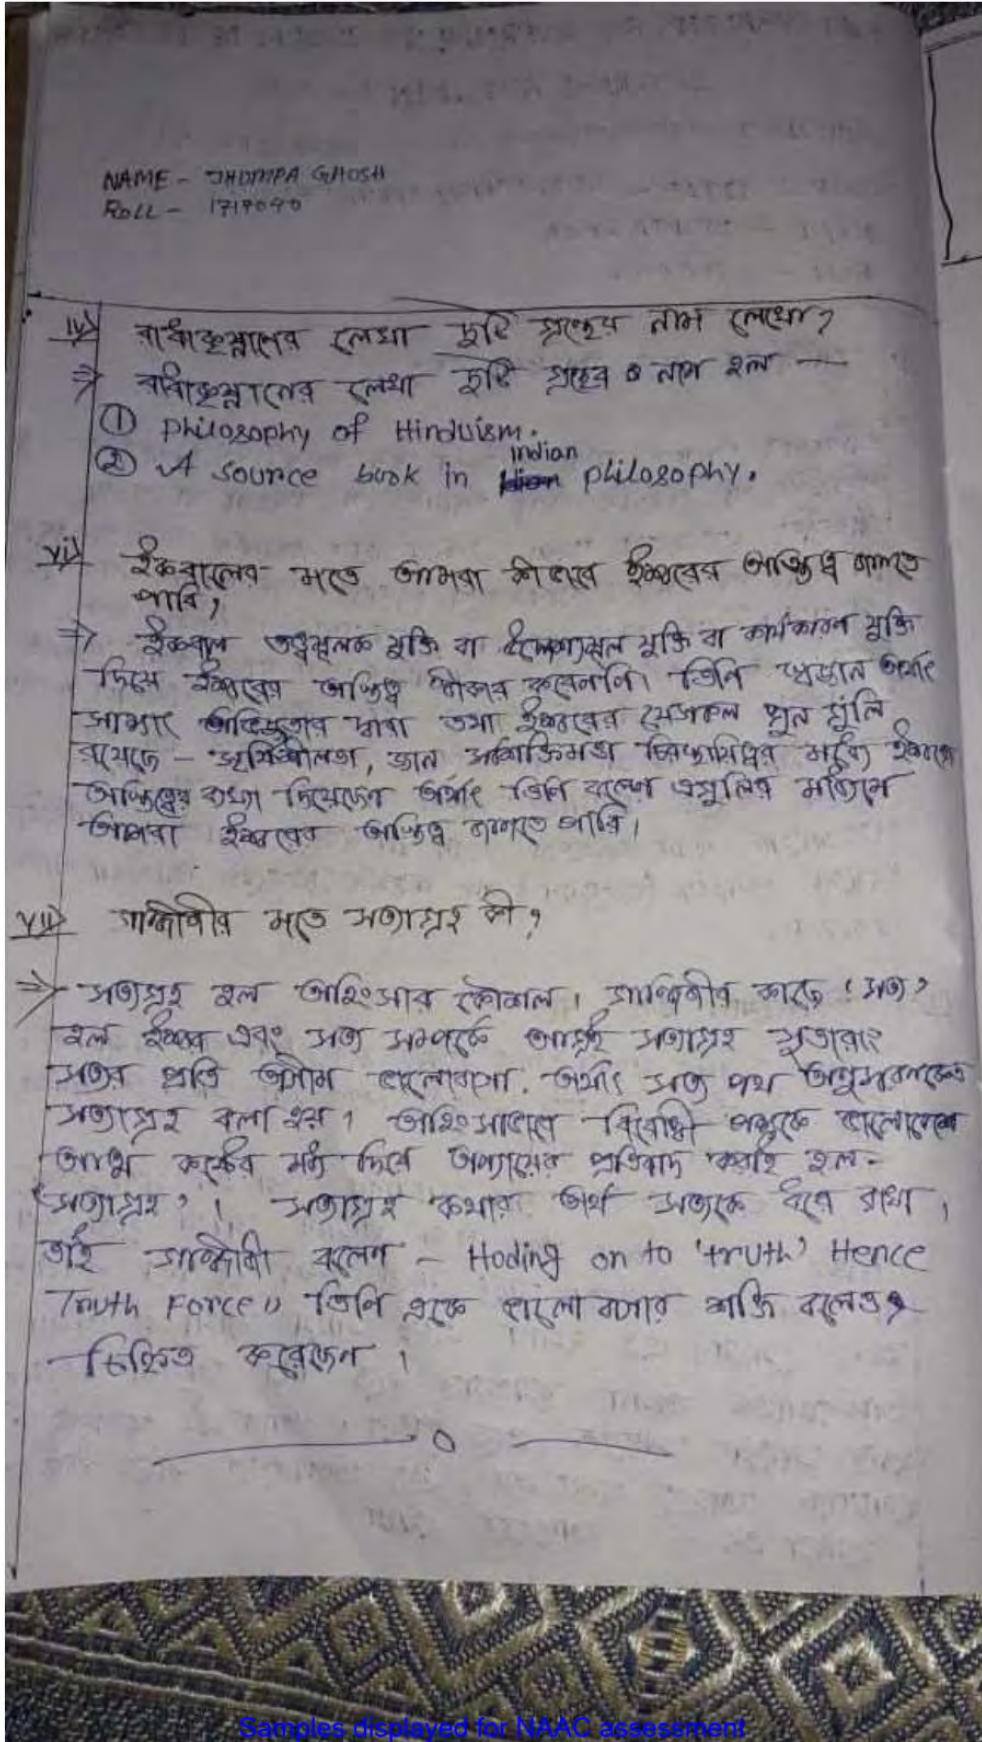 NAME - JHUMPA GHOSH
ROLL - 1717090
iv) রাধাকৃষ্ণনের লেখা দুটি গ্রন্থের নাম লেখো?
⇒ রাধাকৃষ্ণনের লেখা দুটি গ্রন্থের নাম হল —
① Philosophy of Hinduism.
② A source book in Indian philosophy.
vi) ইকবালের মতে আমরা কীভাবে ঈশ্বরের অস্তিত্ব জানতে
পারি?
⇒ ইকবাল তত্ত্বমূলক যুক্তি বা উদ্দেশ্যমূল যুক্তি বা কার্যকারণ যুক্তি
দিয়ে ঈশ্বরের অস্তিত্ব স্বীকার করেননি। তিনি অর্থাৎ
অভিজ্ঞতার দ্বারা তথা ঈশ্বরের যেসকল গুন গুলি
রয়েছে - সৃষ্টিশীলতা, জ্ঞান সর্বশক্তিমত্তা চিরস্থায়িত্বের মধ্যে ঈশ্বরের
অস্তিত্বের ব্যাখ্যা দিয়েছেন অর্থাৎ তিনি বলেন এগুলির মাধ্যমে
আমরা ঈশ্বরের অস্তিত্ব জানতে পারি।
vii) গান্ধীজীর মতে সত্যাগ্রহ কী?
⇒ সত্যগ্রহ হল অহিংসার কৌশল। গান্ধিজীর কাছে 'সত্য'
হল ঈশ্বর এবং সত্য সম্পর্কে আগ্রহই সত্যাগ্রহ সুতারাং
সত্যর প্রতি অসীম ভালোবাসা. অর্থাৎ সত্য পথ অনুসরনকেই
সত্যাগ্রহ বলা হয়। অহিংসাভাবে বিরোধী পক্ষকে ভালোবেসে
আত্ম কষ্টের মধ্য দিয়ে অন্যায়ের প্রতিবাদ করাই হল-
'সত্যাগ্রহ'। সত্যাগ্রহ কথার অর্থ সত্যকে ধরে রাখা।
তাই গান্ধীজী বলেন - Hoding on to 'truth' Hence
Truth Force" তিনি একে ভালো বাসার শক্তি বলেও
চিহ্নিত করেছেন।
Samples displayed for NAAC assessment